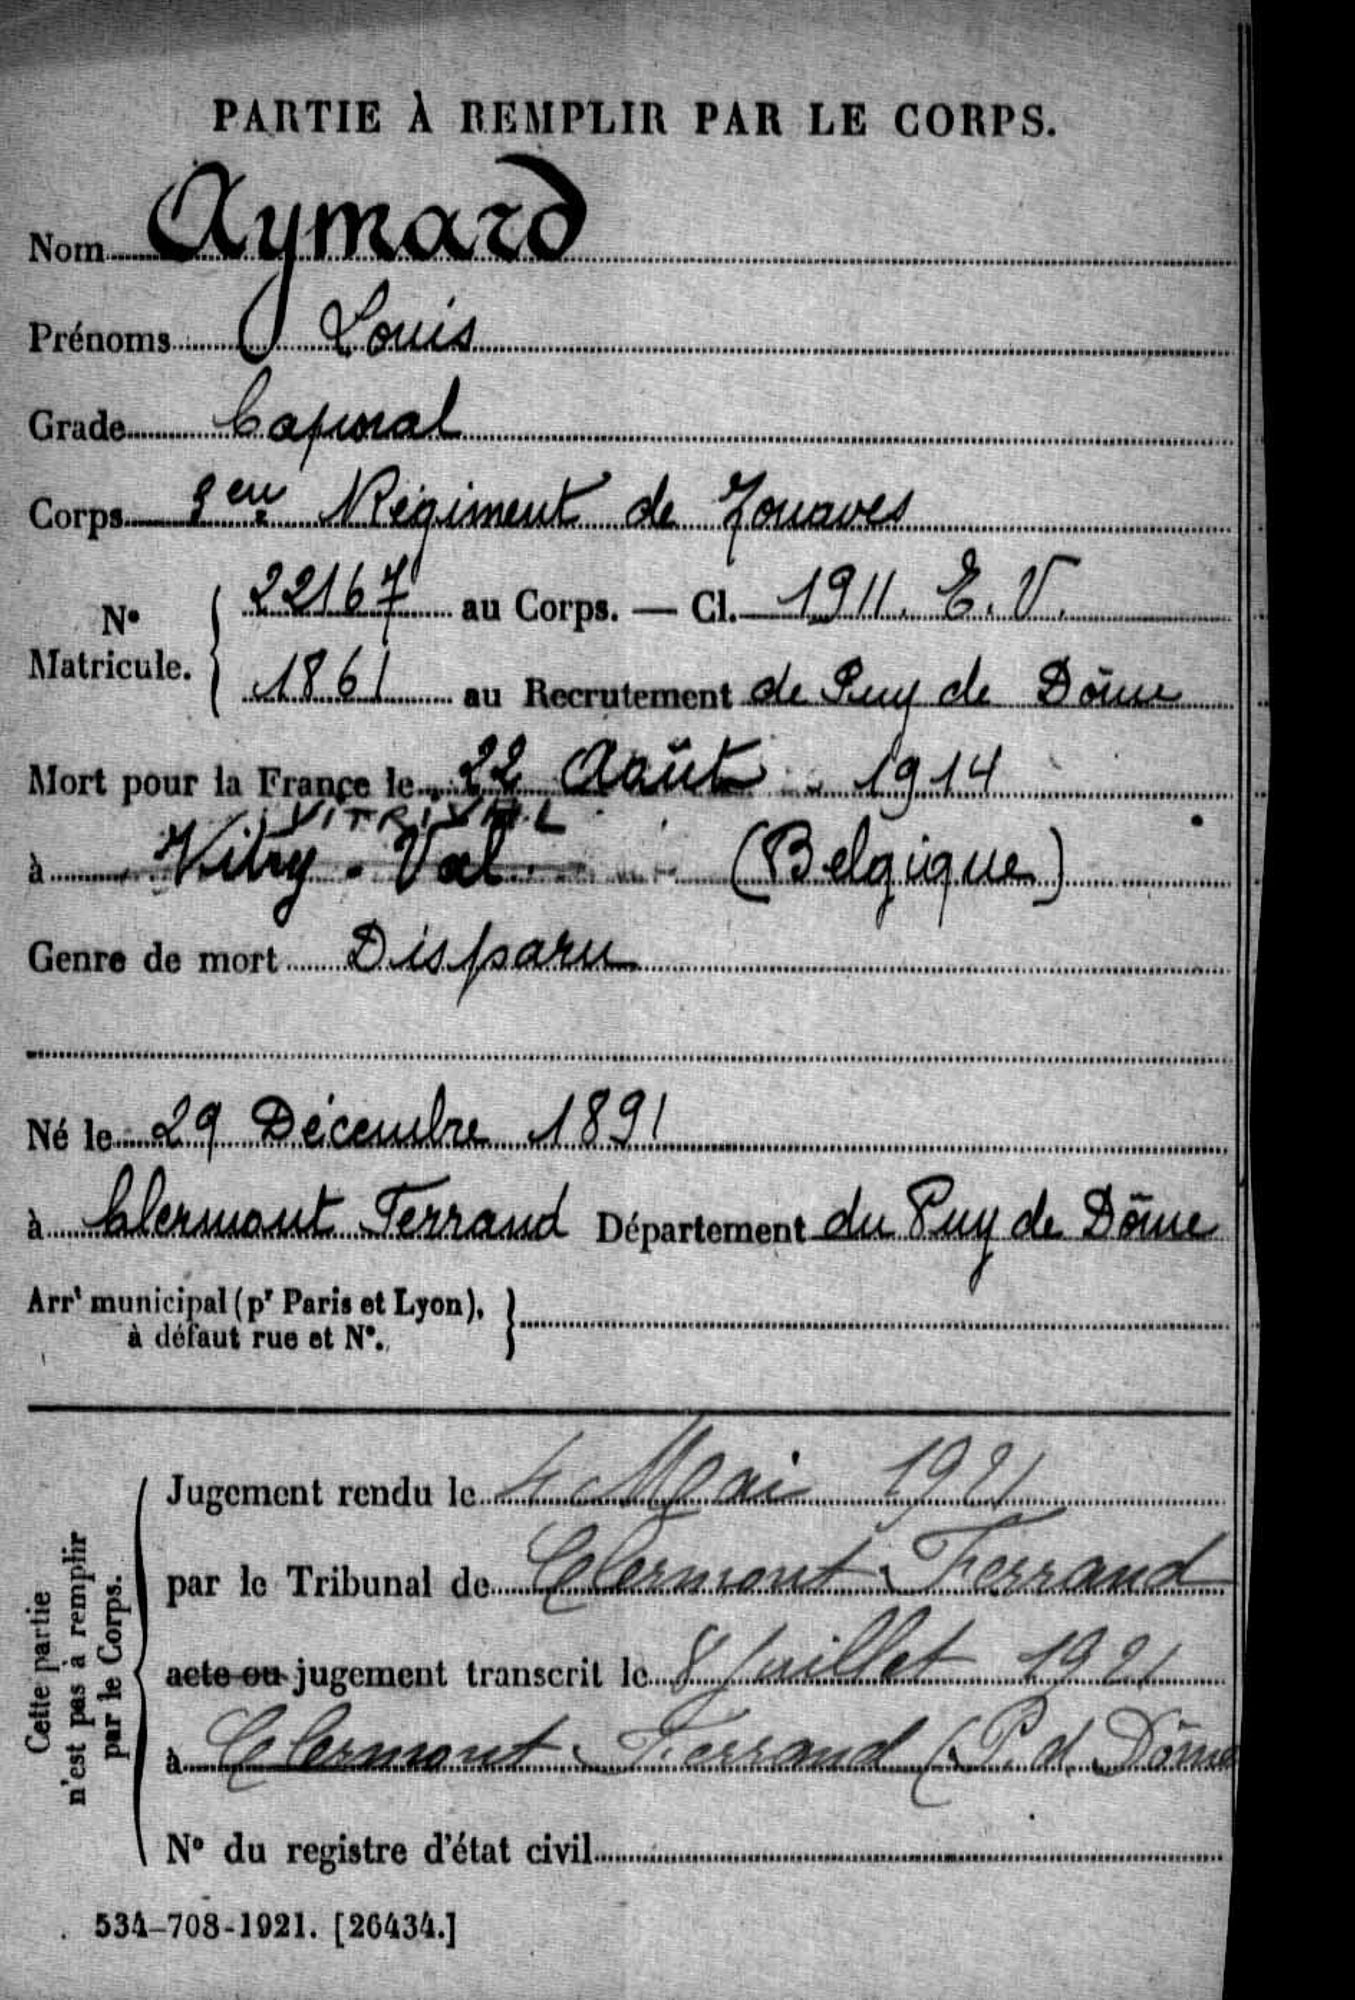 PARTIE À REMPLIR PAR LE CORPS.
Nom Aymard
Prénoms Louis
Grade Caporal
Corps 3eme Régiment de Zouaves
N° Matricule. { 22167 au Corps. — Cl. 1911. E. V.
1861 au Recrutement de Puy de Dôme
Mort pour la France le 22 Août 1914
VITRIVAL
à Vitry-Val (Belgique)
Genre de mort Disparu
Né le 29 Décembre 1891
à Clermont Ferrand Département du Puy de Dôme
Arrt municipal (pr Paris et Lyon), à défaut rue et N°. }
Cette partie n'est pas à remplir par le Corps.
Jugement rendu le 4 Mai 1921
par le Tribunal de Clermont-Ferrand
acte ou jugement transcrit le 8 Juillet 1921
à Clermont-Ferrand (P. d. Dôme
N° du registre d'état civil
534-708-1921. [26434.]